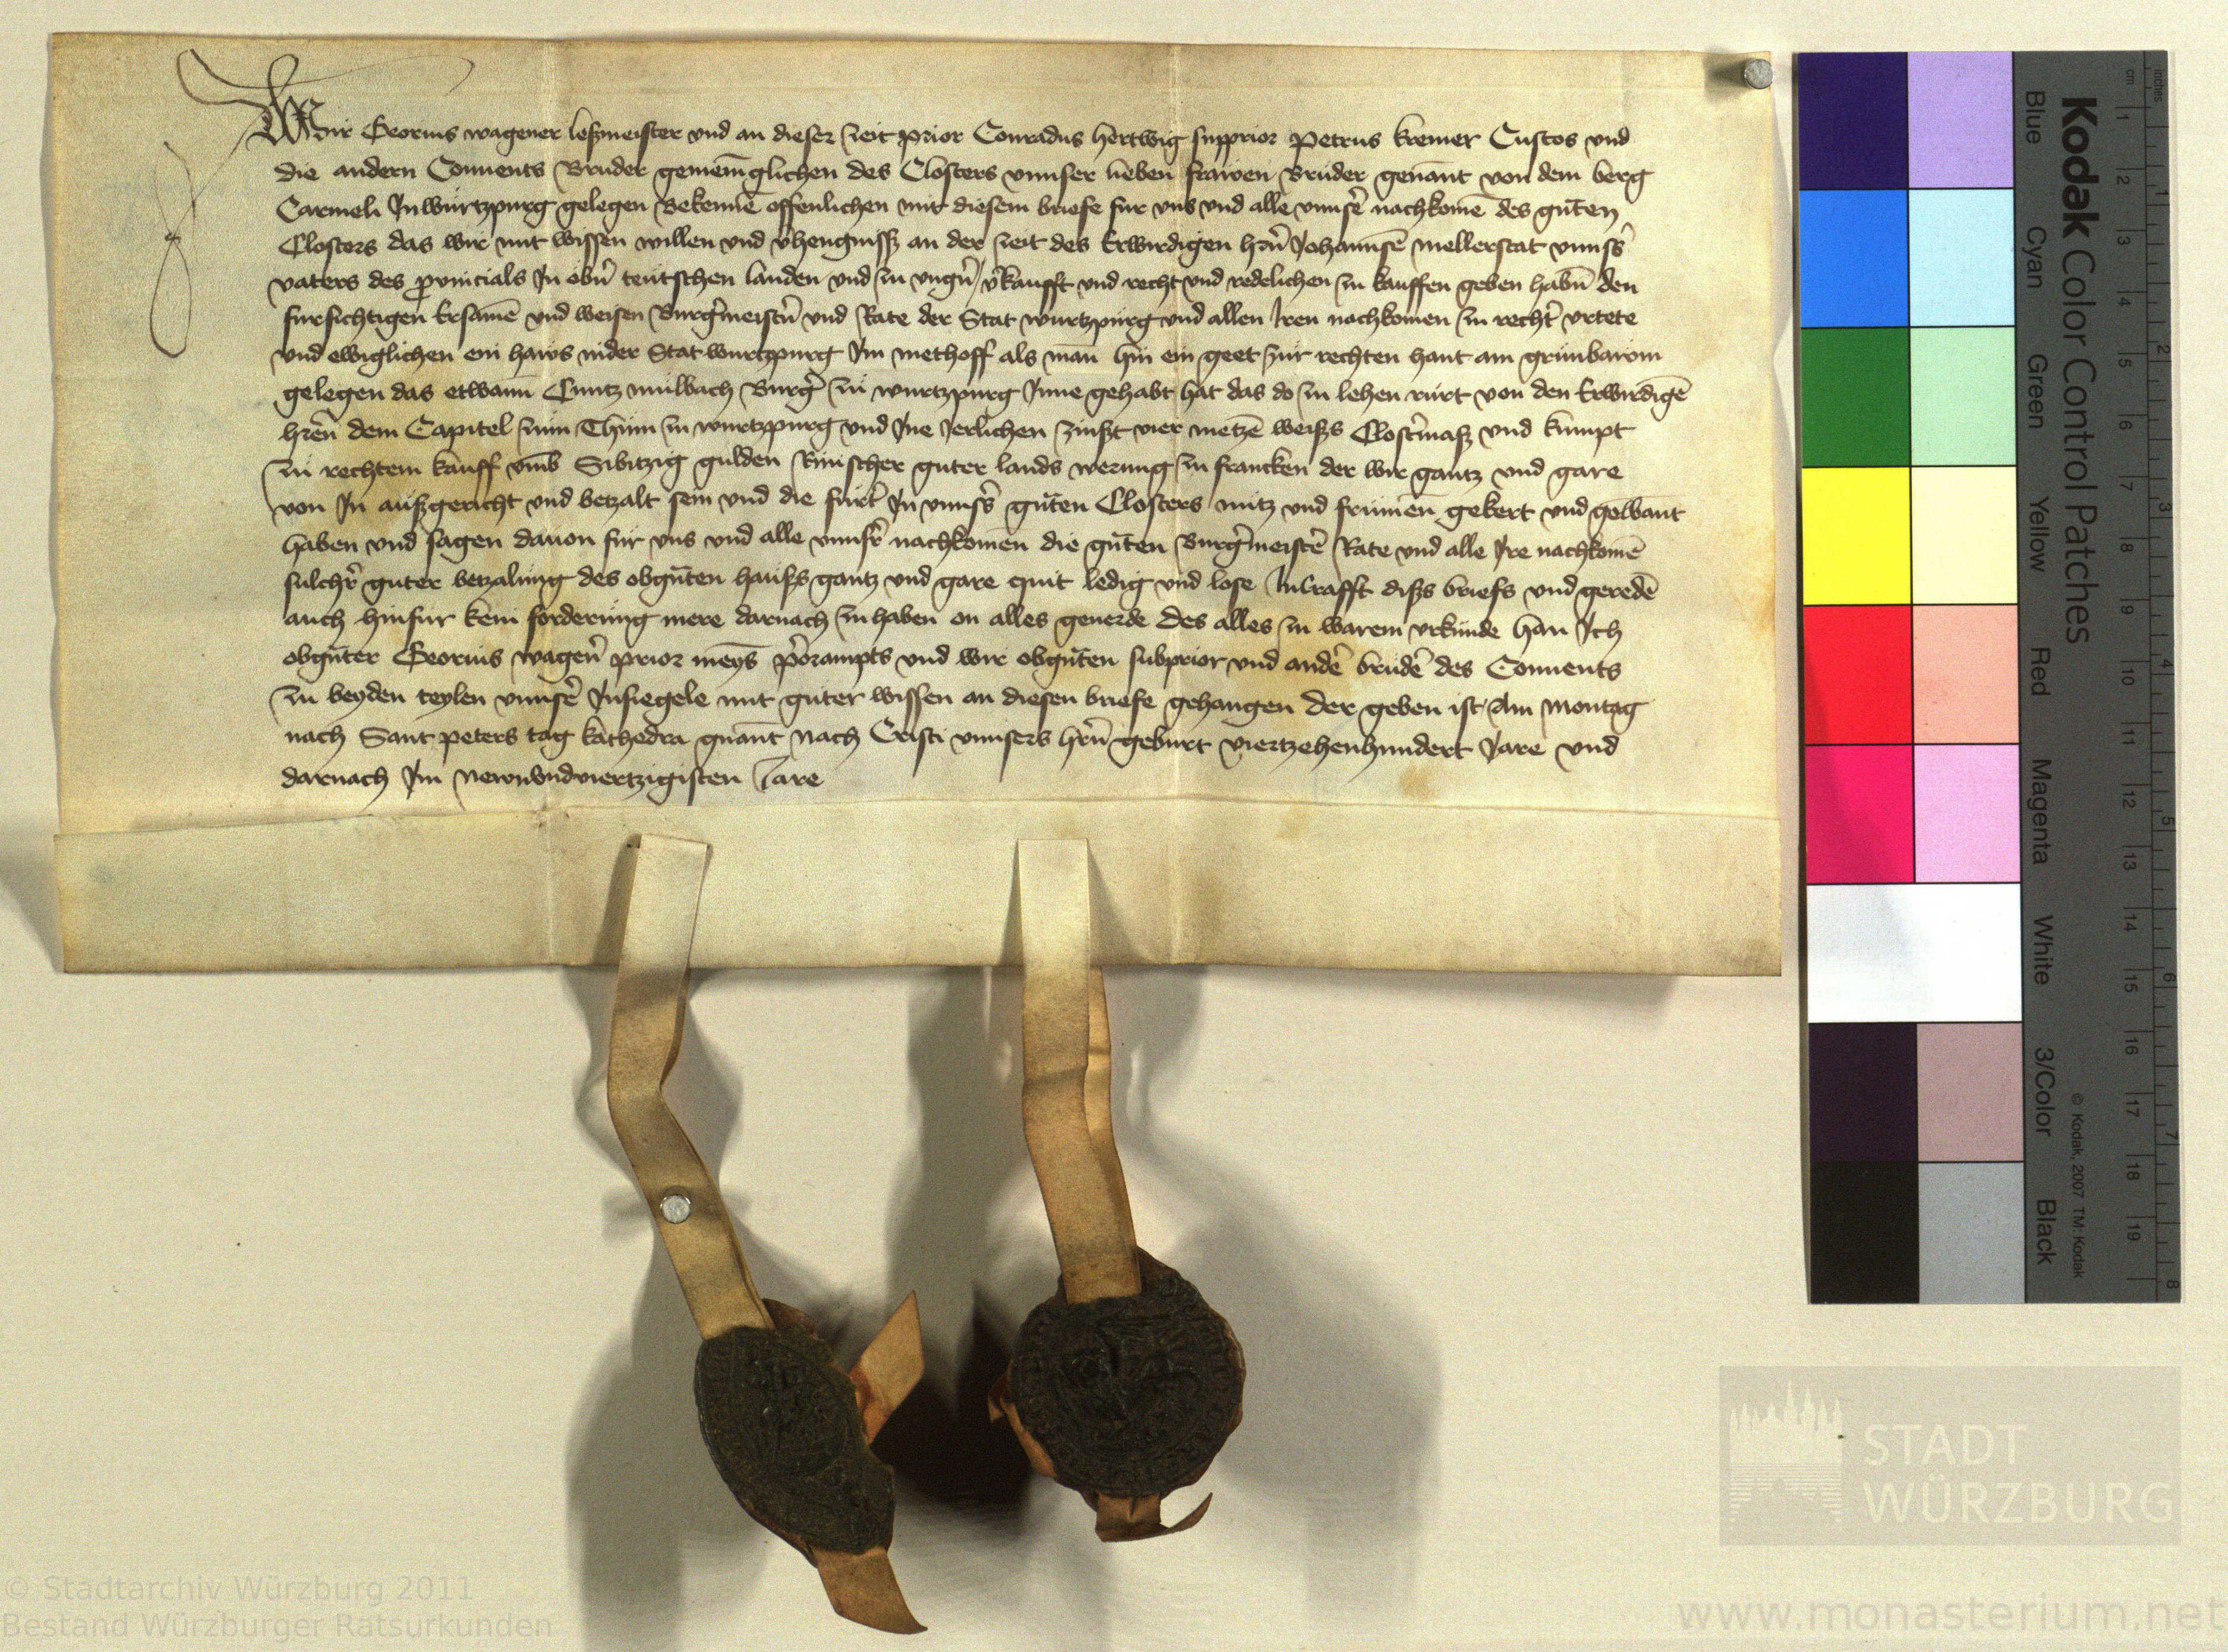 Wir Georius wagener leszmeister vnd an dieser zeit prior Conradus hertwig supprior Petrus kremer Custos vnd
die andern Conuents Bruder gemein̄glichen des Closters vnnser lieben frawen Bruder genān̄t von dem berg
Carmeli Inwurtzpurg gelegen Bekennē offenlichen mit diesem briefe fur vns vnd alle vnnsˀe nachkomē des gn̄ten
Closters das wir mit wissen willen vnd vˀhengnissz an der zeit des Erwirdigen hrn̄ Johannsē mellerstat vnnsˀs
vaters des prouincials In obnˀ teutschen landen vnd zu vngnˀ / vˀkaufft vnd recht vnd redelichen zu kauffen geben habn̄ den
fursichtigen Ersamē vnd weisen Burgˀmeistnˀ vnd Rate der Stat wurtzpurg vnd allen Iren nachkomen zu rechtˀ vrtete
vnd ewiglichen ein haws inder Stat wurtzpurg Im methoff als man hin ein geet zur rechten hant am grunbawm
gelegen das etwann Cuntz mulbach Burgˀ zu wurtzpurg Inne gehabt hat das do zu lehen rurt von den Erwirdigē
hrēn dem Capitel zum Thum zu wurtzpurg vnd Ine Ierlichen zinszt vier metzē weiszs Clostˀmasz vnd kumpt
zu rechtem kauff vmb Sibitzig gulden Rinischer guter lands werung zu francken der wir gantz vnd gare
von In auszgericht vnd betzalt sein vnd die furtˀ In vnnsˀs gn̄ten Closters nutz vnd frumen gekert vnd gewant
haben vnd sagen dauon fur vns vnd alle vnnsrˀ nachkomen die gn̄ten Burgˀmeistˀe Rate vnd alle Ire nachkomē
sulchrˀ guter betzalung des obgn̄ten hauszs gantz vnd gare quit ledig vnd lose Incrafft diszs briefs vnd geredē
auch hinfur kein forderung mere darnach zu haben on alles geuerde Des alles zu warem vrkunde han Ich
obgn̄ter Georius wagenˀ prior meyns pˀorampts vnd wir obgn̄ten subprior vnd andˀe brudˀe des Conuents
zu beyden teylen vnnsˀe Insiegele mit guter wissen an diesen briefe gehangen Der geben ist Am Montag
nach Sant peters tag kathedra gn̄ant Nach Cristi vnnsers hrn̄ geburt viertzehenhundert Jare vnd
darnach Im Newnvndviertzigisten Jare
Kodak Color Control Patches
Blue Cyan Green Yellow Red Magenta White 3/Color Black
© Kodak, 2007 TM: Kodak
cm 1 2 3 4 5 6 7 8 9 10 11 12 13 14 15 16 17 18 19
inches 1 2 3 4 5 6 7 8
STADT
WÜRZBURG
© Stadtarchiv Würzburg 2011
Bestand Würzburger Ratsurkunden
www.monasterium.net